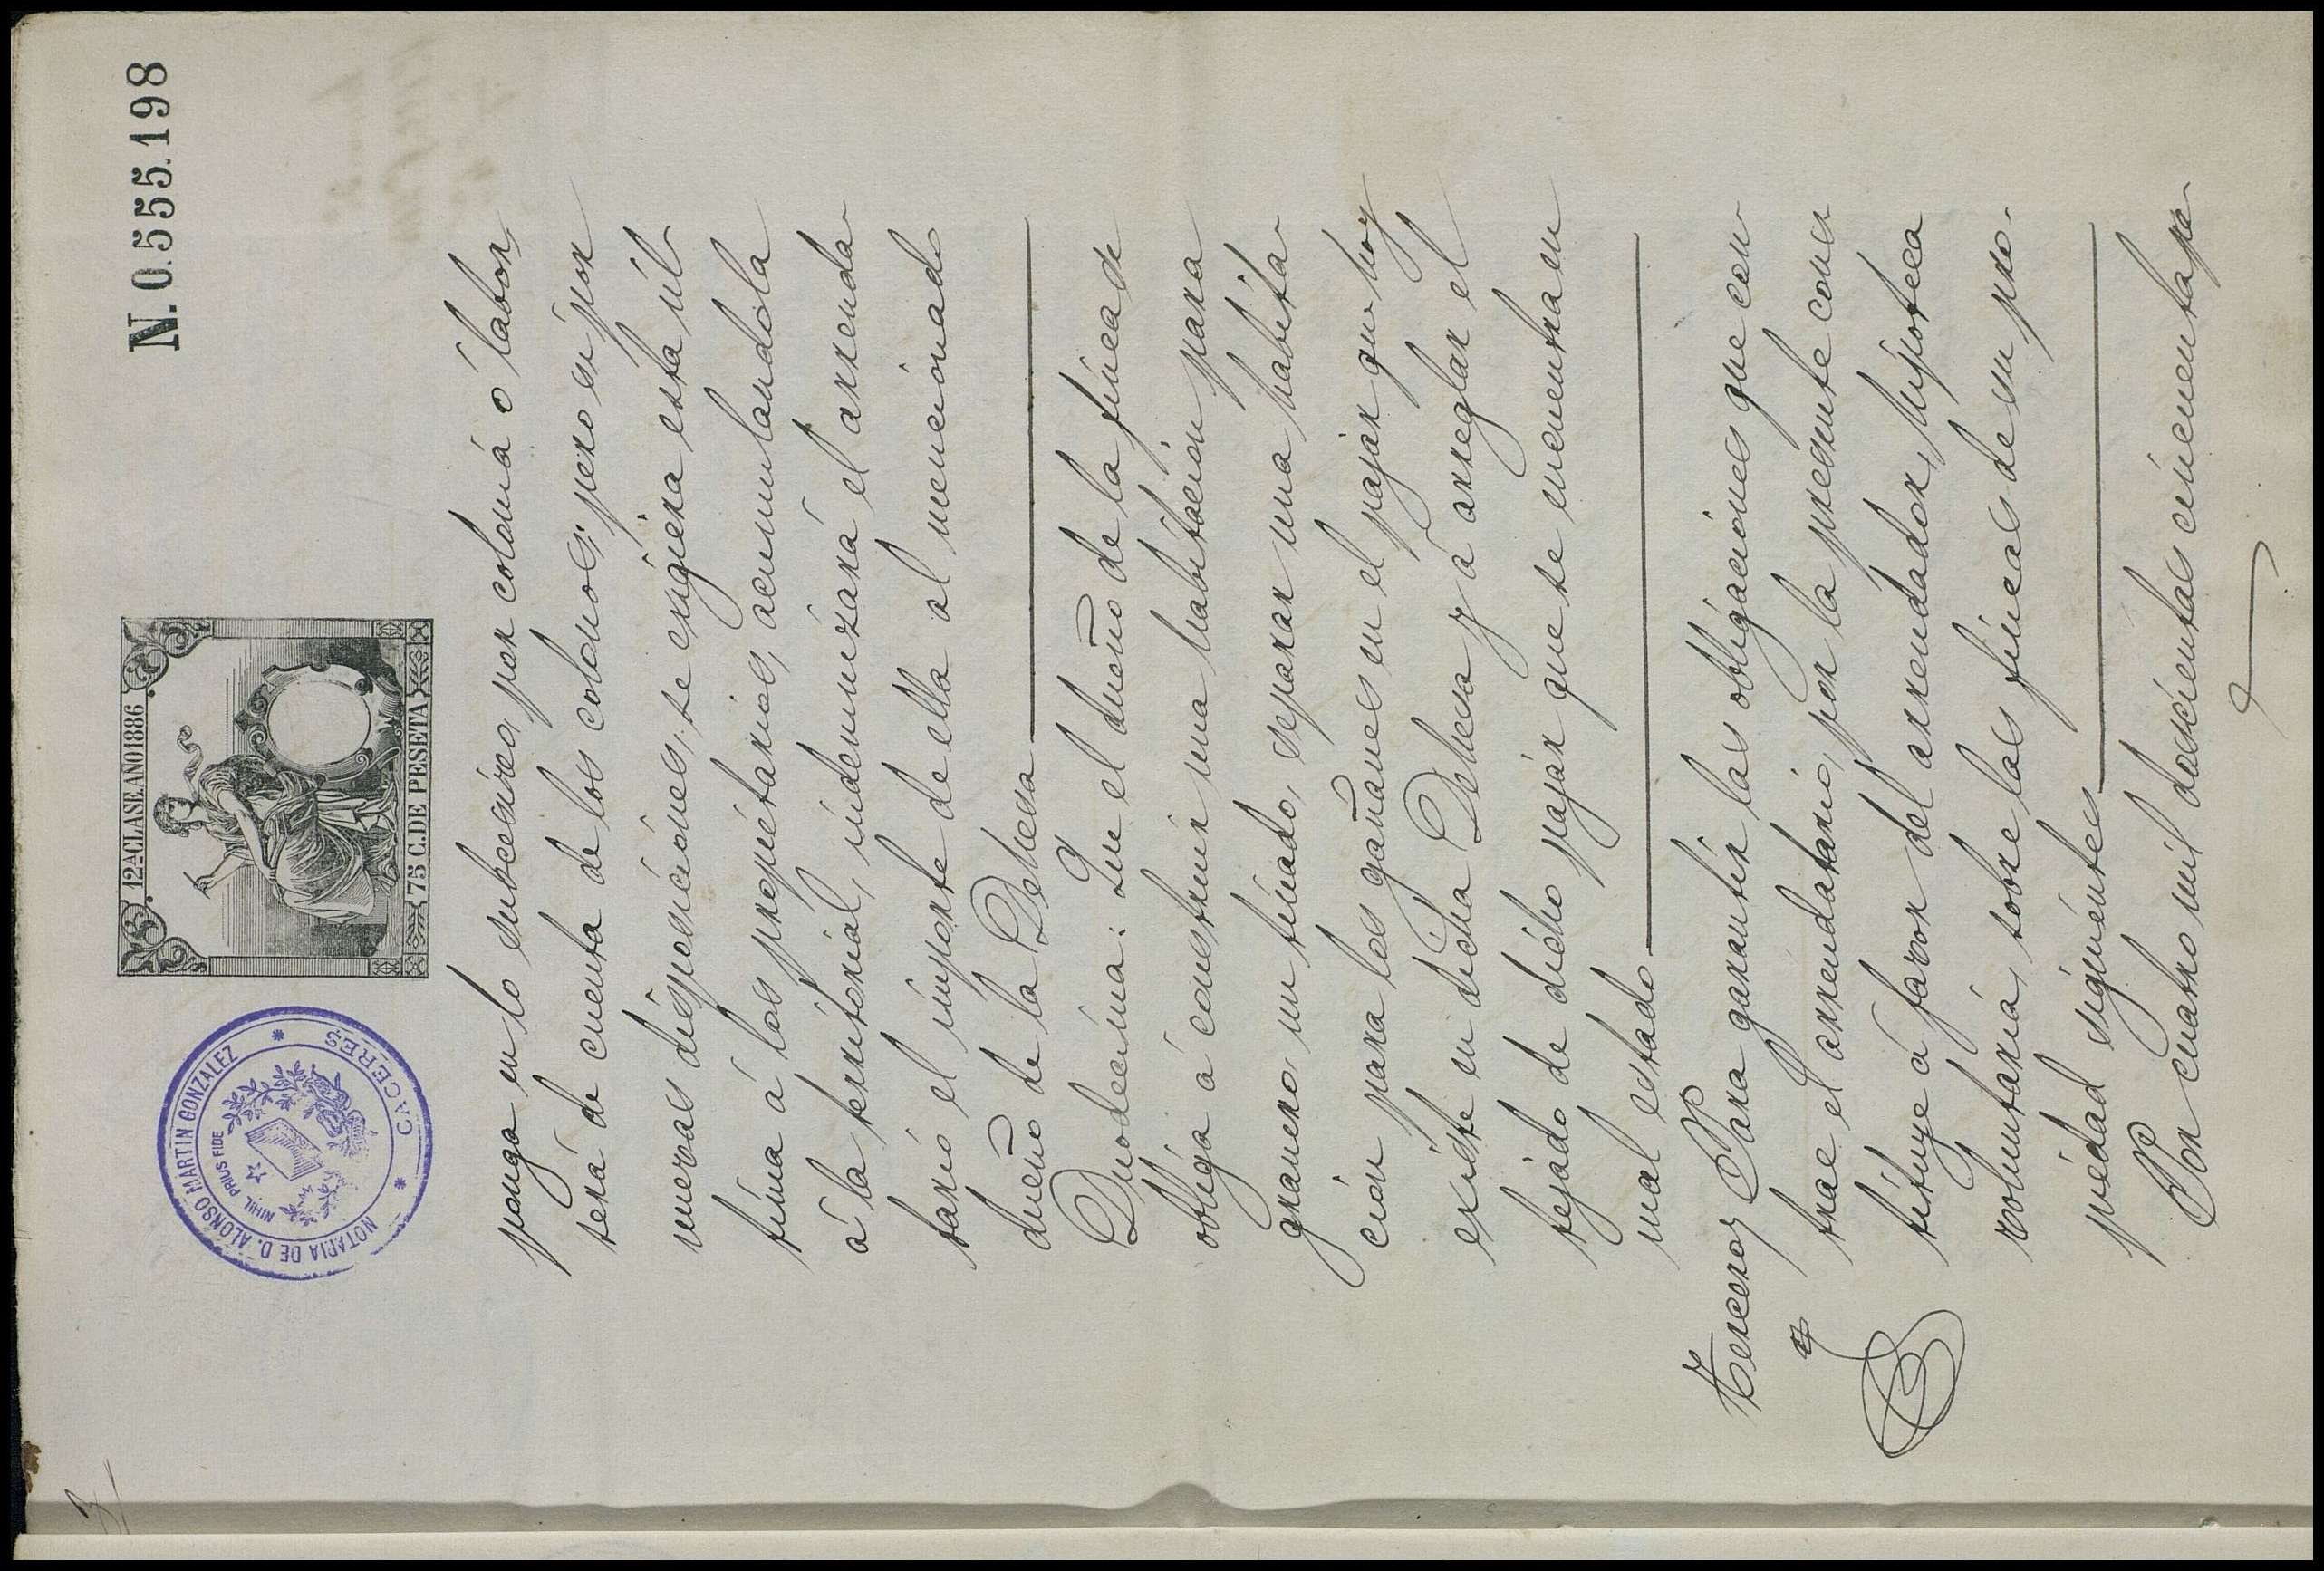 3
NOTARIA DE D. ALONSO MARTIN GONZALEZ
* CACERES *
NIHIL PRIUS FIDE
12ª CLASE. AÑO 1886
75 C. DE PESETA
N. 0.555.198
ponga en lo subcesivo, por colonia ó labor,
será de cuenta de los colonos; pero si por
nuevas disposiciones, se exigiera esta úl-
tima á los propietarios, acumulandola
á la territorial, indemnizará el arrenda-
tario el importe de ella al mencionado
dueño de la Dehesa
Duodecima: Que el dueño de la finca se
obliga á construir una habitación para
granero, un tinado, separar una habita-
ción para los gañanes en el pajar que hoy
existe en dicha Dehesa y á arreglar el
tejado de dicho pajar que se encuentra en
mal estado.
Tercero, Para garantir las obligaciones que con-
trae el arrendatario, por la presente cons-
tituye á favor del arrendador, hipoteca
voluntaria, sobre las fincas de su pro-
piedad siguientes
Por cuatro mil doscientas cincuenta pe-